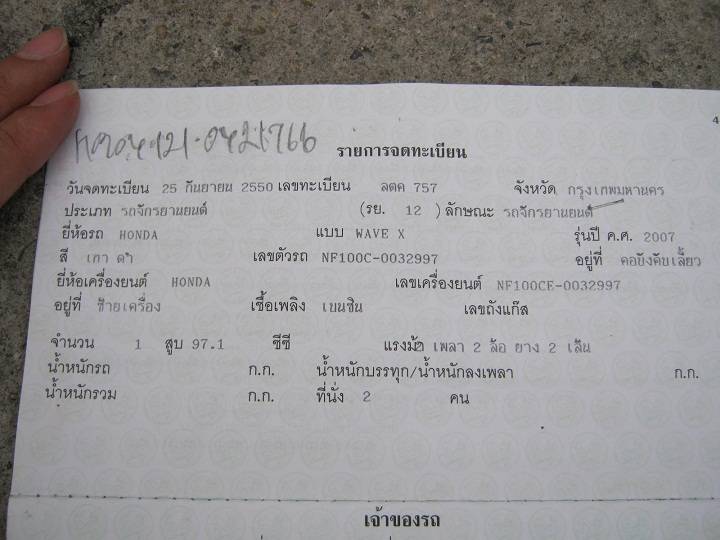 4
รายการจดทะเบียน
วันจดทะเบียน 25 กันยายน 2550 เลขทะเบียน ลตค 757 จังหวัด กรุงเทพมหานคร
ประเภท รถจักรยานยนต์ (รย. 12 ) ลักษณะ รถจักรยานยนต์
ยี่ห้อรถ HONDA แบบ WAVE X รุ่นปี ค.ศ. 2007
สี เทา ดำ เลขตัวรถ NF100C-0032997 อยู่ที่ คอบังคับเลี้ยว
ยี่ห้อเครื่องยนต์ HONDA เลขเครื่องยนต์ NF100CE-0032997
อยู่ที่ ซ้ายเครื่อง เชื้อเพลิง เบนซิน เลขถังแก๊ส
จำนวน 1 สูบ 97.1 ซีซี แรงม้า เพลา 2 ล้อ ยาง 2 เส้น
น้ำหนักรถ ก.ก. น้ำหนักบรรทุก/น้ำหนักลงเพลา ก.ก.
น้ำหนักรวม ก.ก. ที่นั่ง 2 คน
เจ้าของรถ